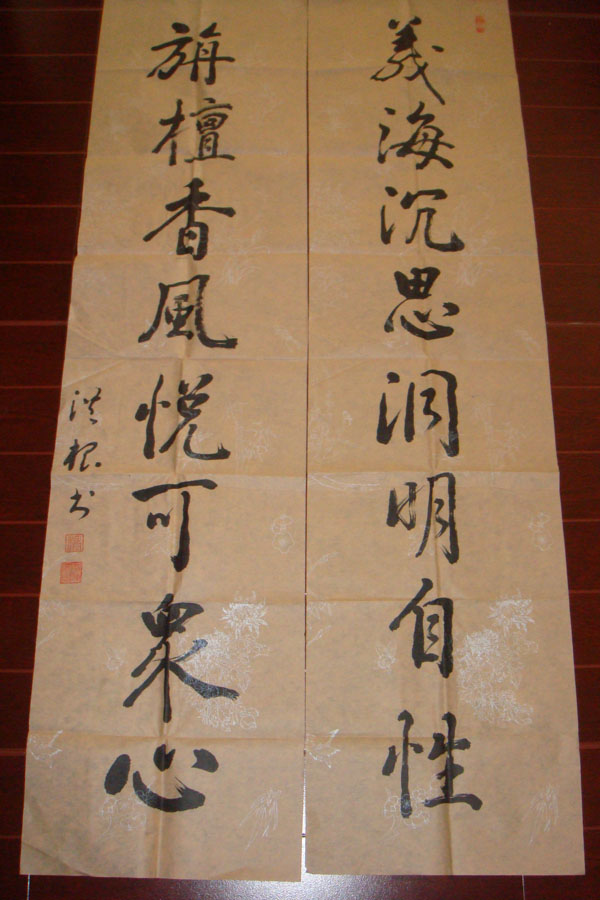 義海沉思洞明自性
旃檀香風悅可眾心
洪根书